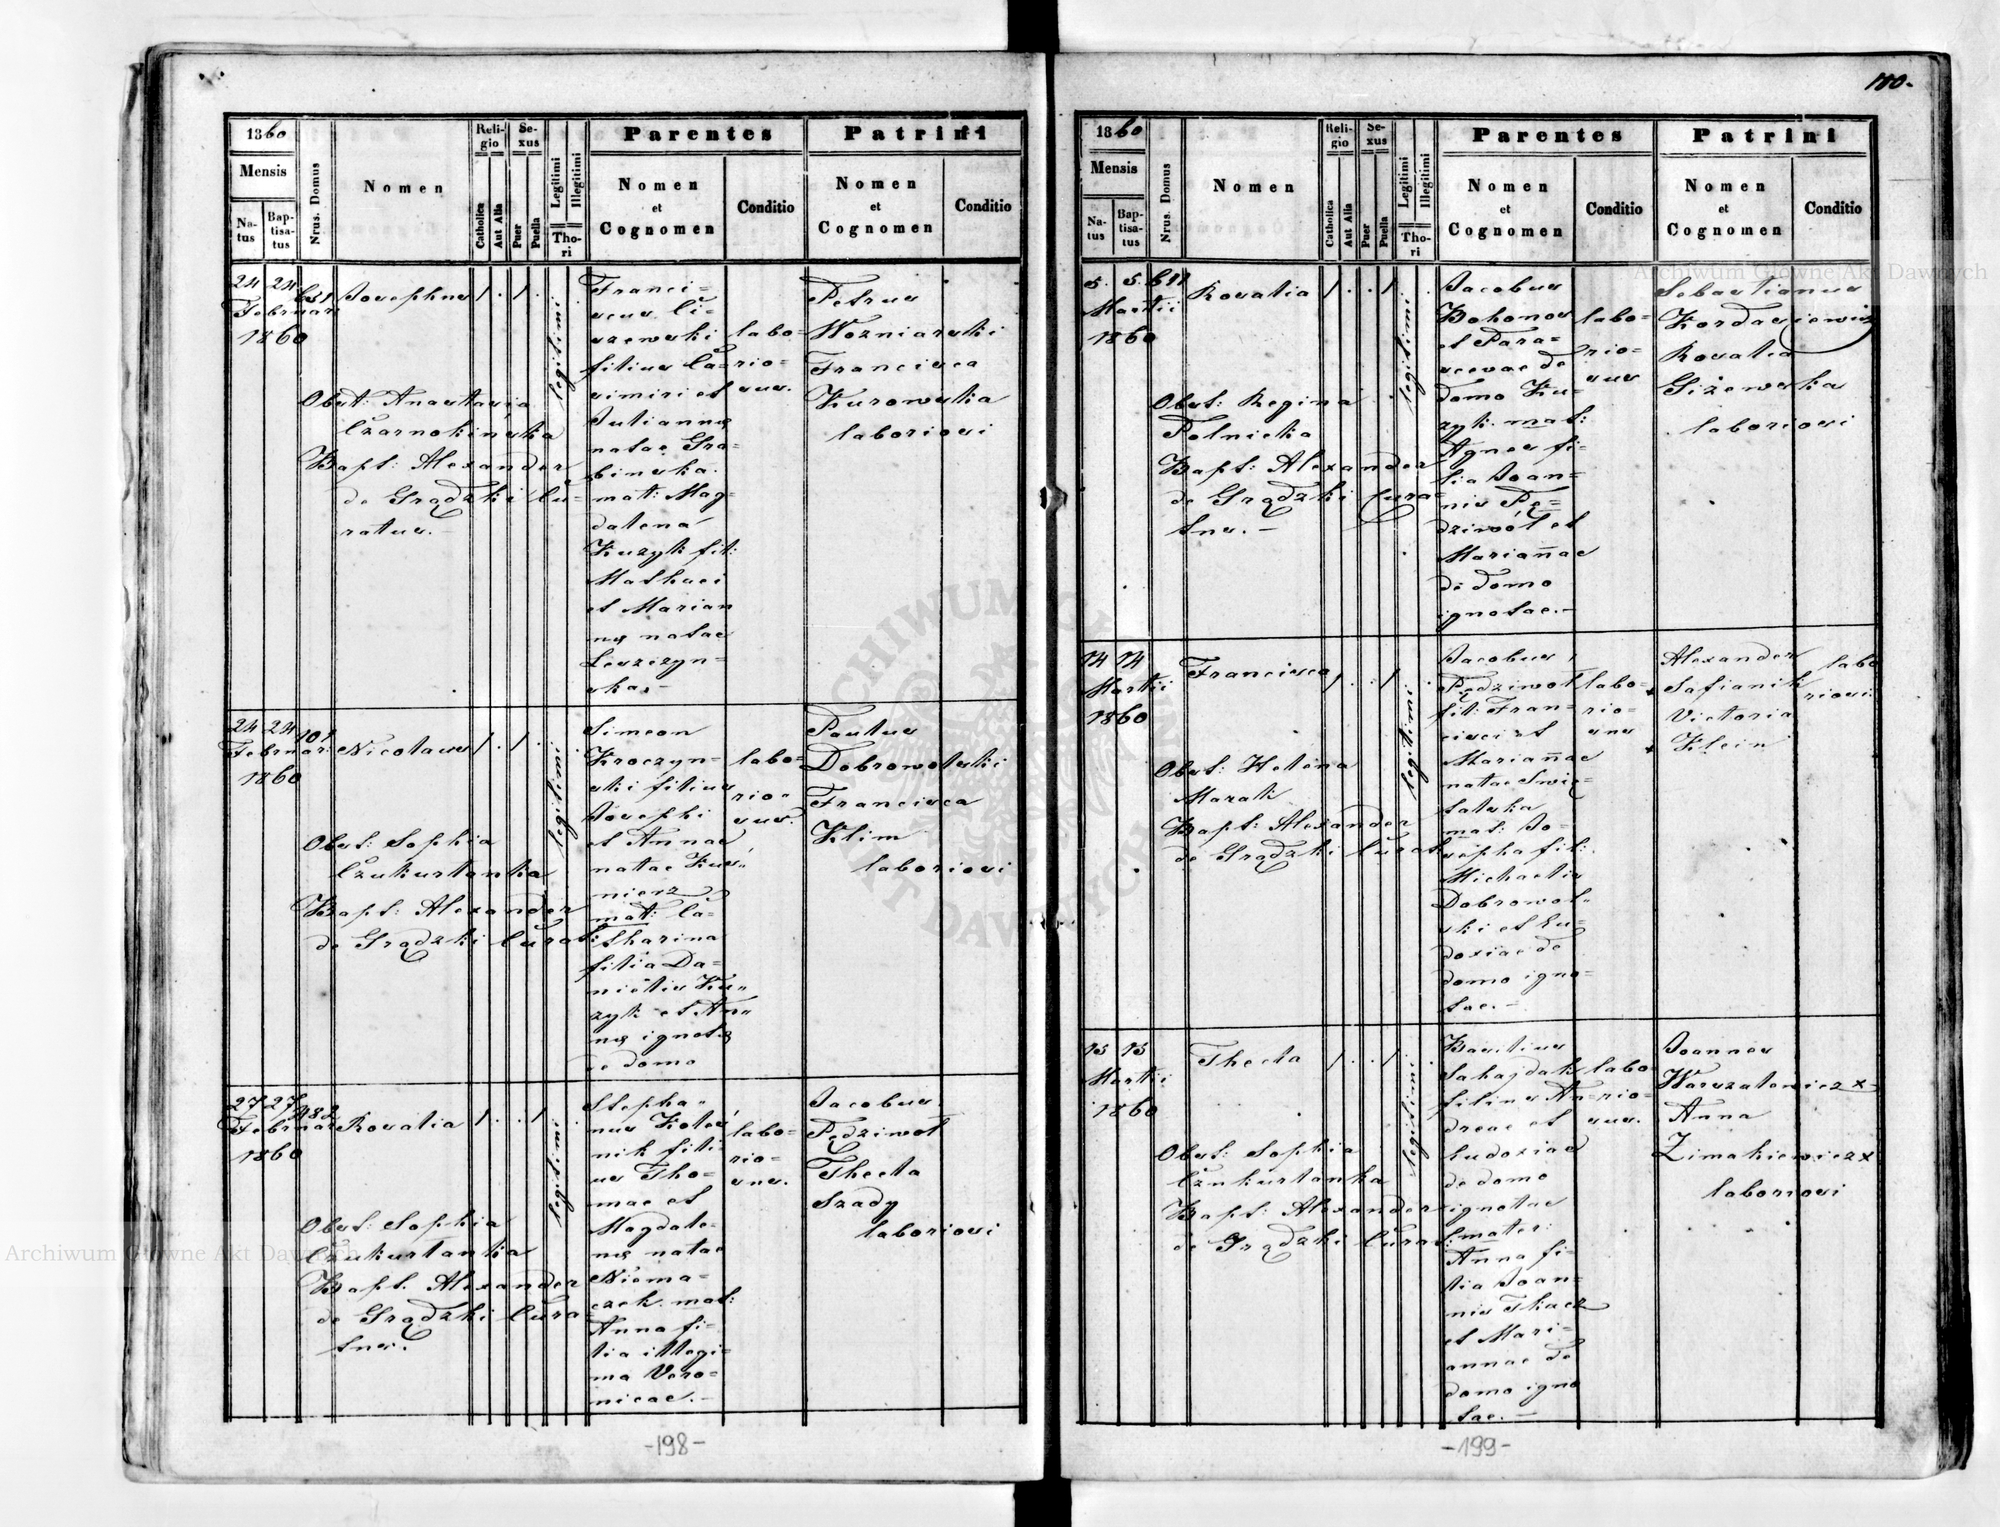 1860
Mensis
Na-
tus
Bap-
tisa-
tus
Nrus. Domus
Nomen
Reli-
gio
Catholica
Aut Alia
Se-
xus
Puer
Puella
Legitimi
Illegitimi
Tho-
ri
Parentes
Nomen
et
Cognomen
Conditio
Patrini
Nomen
et
Cognomen
Conditio
24 24
Februari
1860
651
Josephus 1 . 1 .
legitimi
Obst: Anastasia
Czarnokińska
Bapt: Alexander
de Grądzki Cu-
ratus.
Franci=
scus Li=
szewski
filius Ca=
simiri et
Juliannę
natae Gra=
binska.
mat: Mag=
dalena
Kuzyk fil:
Mathaei
et Marian
nę natae
Leszczyn=
ska,
labo=
rio=
sus.
Petrus
Wozniarski
Francisca
Kurowska
laboriosi
24 24
Februar:
1860
101
Nicolaus 1 . 1 .
legitimi
Obst: Sophia
Czukurtanka
Bapt: Alexander
de Grądzki Curat:
Simeon
Kroczyn=
ski filius
Josephi
et Annae
natae Kuś=
nierz
mat: Ca=
tharina
filia Da=
nielis Ku=
zyk et An=
nę ignotę
de domo
labo=
rio=
sus.
Paulus
Dobrowolski
Francisca
Klim
laboriosi
27 27
Februar
1860
482
Rosalia 1 . . 1
legitimi
Obst: Sophia
Czukurtanka
Bapt. Alexander
de Grądzki Cura=
tus.
Stepha=
nus Koteś
nik fili=
us Tho=
mae et
Magdale=
nę natae
Niema=
czek. mat:
Anna fi=
lia illegi=
ma Vero=
nicae.
labo=
rio=
sus.
Jacobus
Pędziwół
Thecla
Szady
laboriosi
-198-
100.
1860
Mensis
Na-
tus
Bap-
tisa-
tus
Nrus. Domus
Nomen
Reli-
gio
Catholica
Aut Alia
Se-
xus
Puer
Puella
Legitimi
Illegitimi
Tho-
ri
Parentes
Nomen
et
Cognomen
Conditio
Patrini
Nomen
et
Cognomen
Conditio
5. 5.
Martii
1860
611
Rosalia 1 . . 1
legitimi
Obst: Regina
Polnicka
Bapt: Alexander
de Grądzki Cura=
tus.
Jacobus
Bohonos
et Para=
scevae de
domo Ku=
zyk. mat:
Agnes fi=
lia Joan=
nis Pę=
dziwół et
Mariañae
de domo
ignotae.
labo=
rio=
sus
Sebastianus
Kordasiewicz
Rosalia
Giżewska
laboriosi
14 14
Martii
1860
Francisca 1 . . 1
legitimi
Obst: Helena
Mazak
Bapt: Alexander
de Grądzki Curat
Jacobus
Pędziwół
fil: Fran=
cisci et
Mariañae
natae Swię
talska
mat: Jo=
sepha fil:
Michaelis
Dobrowol=
ski et Eu=
doxiae de
domo igno=
tae.
labo=
rio=
sus
Alexander
Safianik
Victoria
Klein
labo
riosi
15 15
Martii
1860
Thecla 1 . . 1
legitimi
Obst: Sophia
Czukurtanka
Bapt: Alexander
de Grądzki Curat:
Basilius
Sahajdak
filius An=
dreae et
Eudoxiae
de domo
ignotae
mater:
Anna fi=
lia Joan=
nis Tkacz
et Mari=
annae de
domo igno
tae.
labo
rio=
sus.
Joannes
Warszalewicz x
Anna
Zimakiewicz x
laboriosi
-199-
Archiwum Główne Akt Dawnych
Archiwum Główne Akt Dawnych
ARCHIWUM GŁÓWNE AKT DAWNYCH